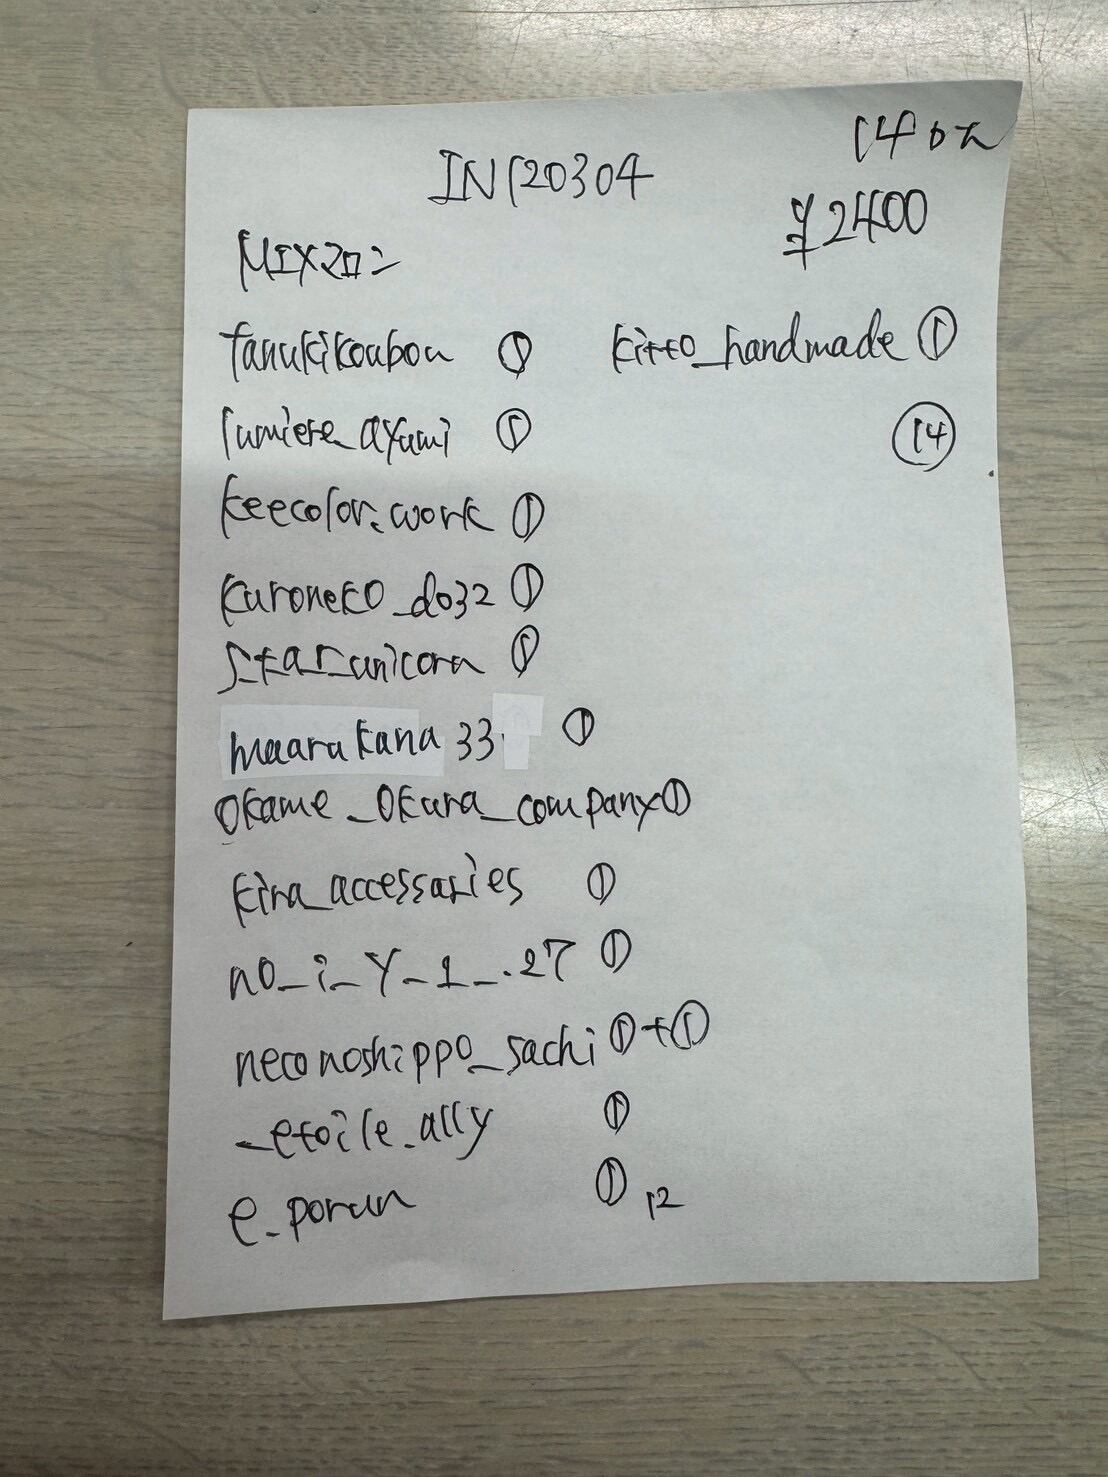 14ロ大
IN120304
¥2400
MIX20コ
tanukikoubou ①
kitto_handmade ①
lumiere_ayumi ①
⑭
keecolor.work ①
kuroneko_do32 ①
star_unicorn ①
maarukana33. ①
okame_okura_company ①
kira_accessaries ①
no_i_y_1_.27 ①
neconoshippo_sachi ①+①
_etoile.ally ①
e_porun ① 12